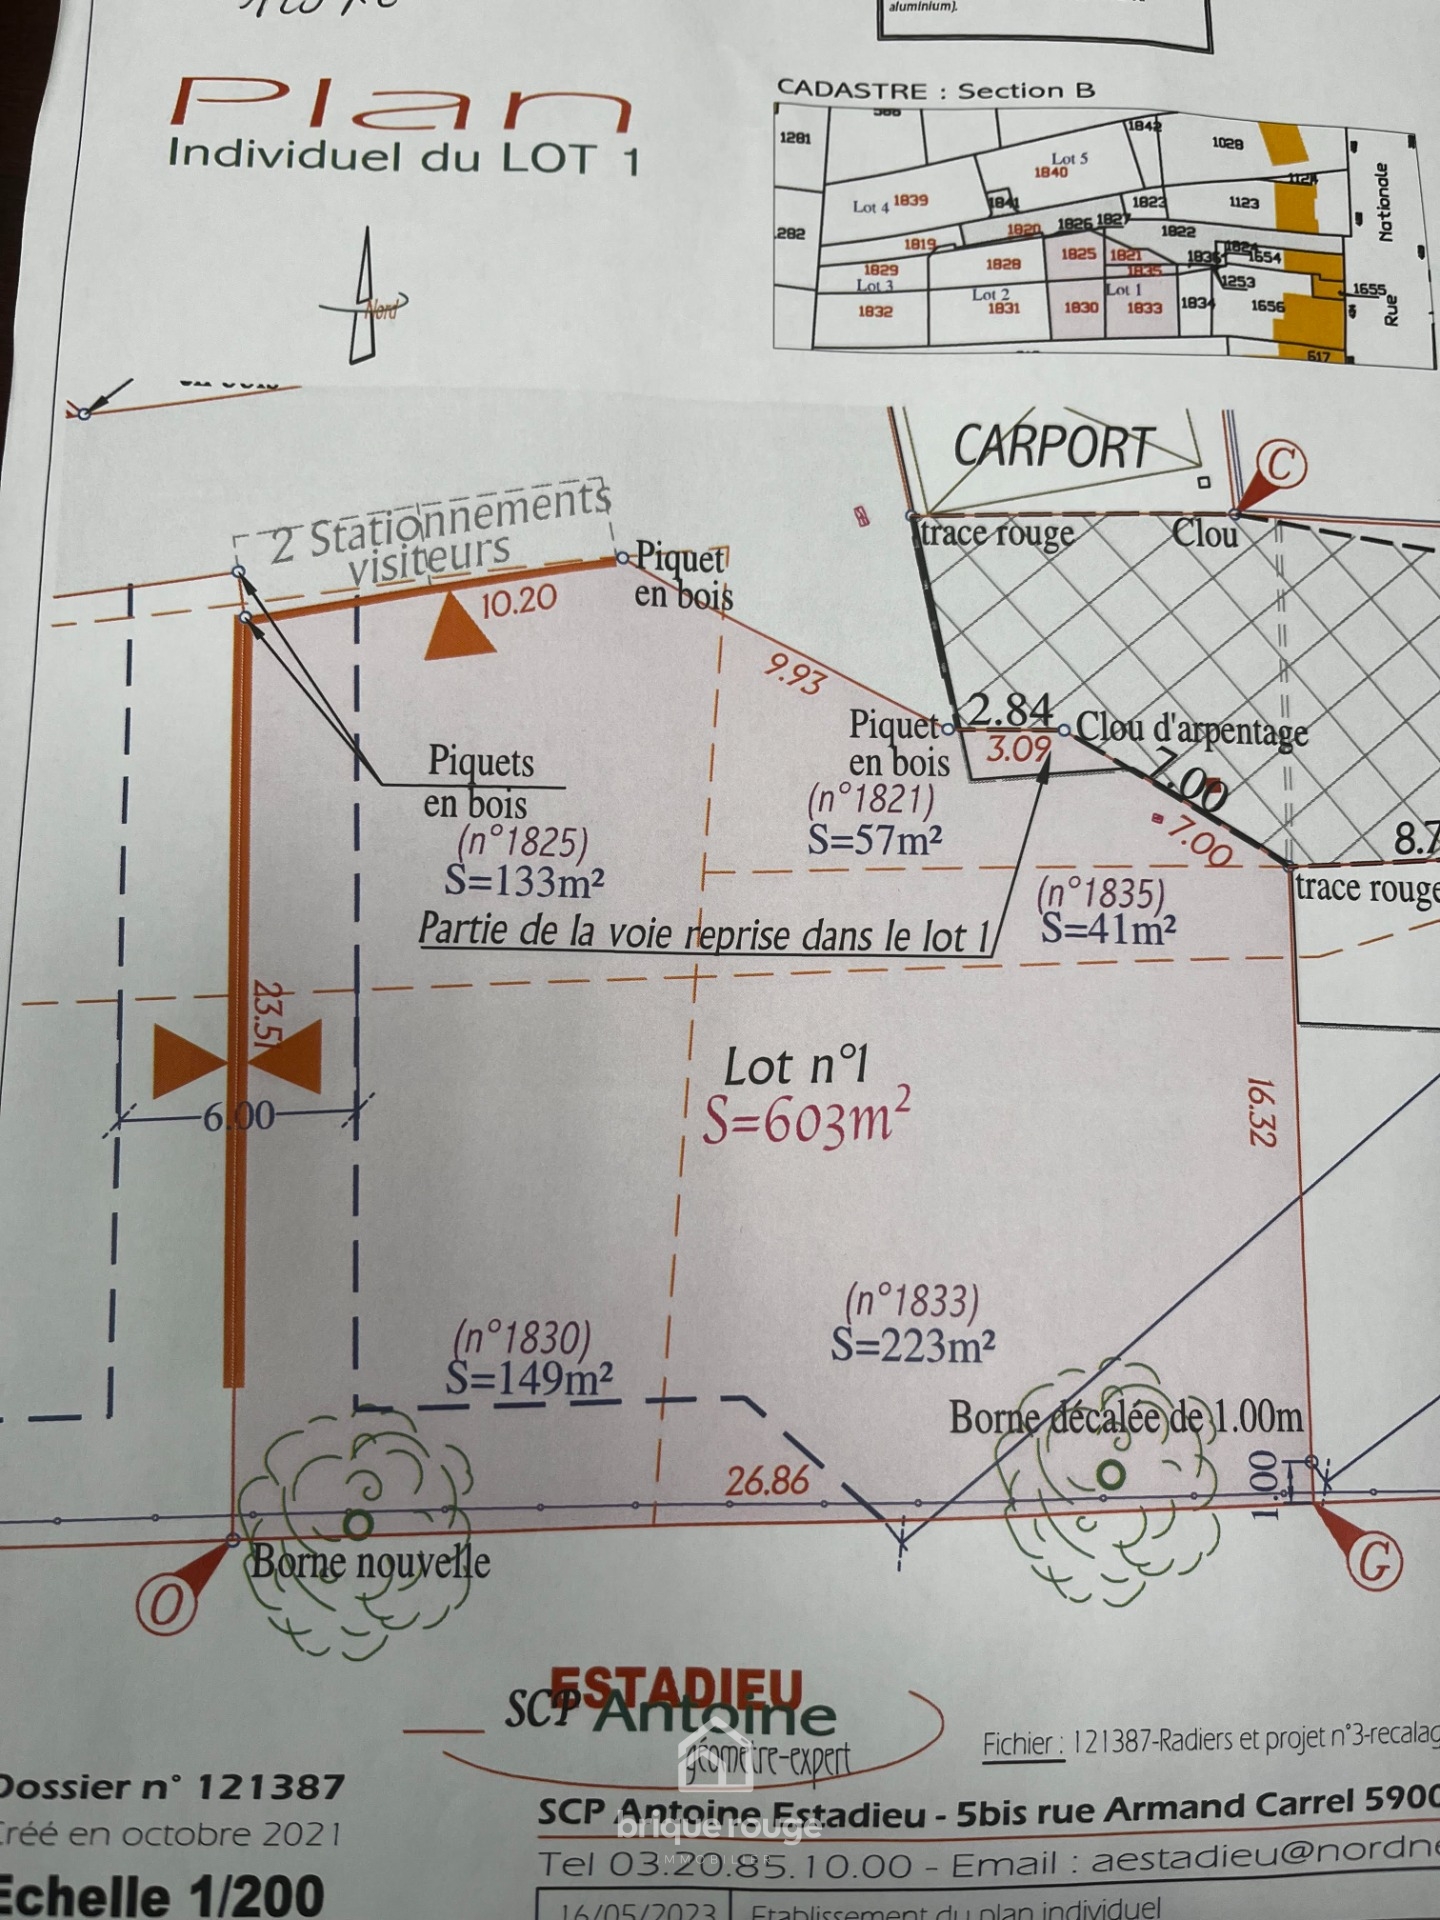 aluminium).
Plan
Individuel du LOT 1
Nord
CADASTRE : Section B
1281
1842
1028
Lot 5
1840
1124
Lot 4 1839
1841
1823
1123
Nationale
282
1820
1826
1827
1822
1819
1825
1821
1836
1824
1654
1829
1828
1835
Lot 3
Lot 2
Lot 1
1253
1655
1832
1831
1830
1833
1834
1656
Rue
617
CARPORT
C
2 Stationnements
visiteurs
trace rouge
Clou
Piquet
en bois
10.20
9.93
Piquet
en bois
2.84
3.09
Clou d'arpentage
7.00
7.00
8.7
trace rouge
Piquets
en bois
(n°1825)
S=133m²
(n°1821)
S=57m²
(n°1835)
S=41m²
Partie de la voie reprise dans le lot 1
23.51
6.00
Lot n°1
S=603m²
16.32
(n°1830)
S=149m²
(n°1833)
S=223m²
Borne décalée de 1.00m
1.00
26.86
Borne nouvelle
O
G
ESTADIEU
SCP Antoine
géomètre-expert
Fichier : 121387-Radiers et projet n°3-recalag
Dossier n° 121387
Créé en octobre 2021
Echelle 1/200
SCP Antoine Estadieu - 5bis rue Armand Carrel 5900
brique rouge
IMMOBILIER
Tel 03.20.85.10.00 - Email : aestadieu@nordne
16/05/2023 Etablissement du plan individuel